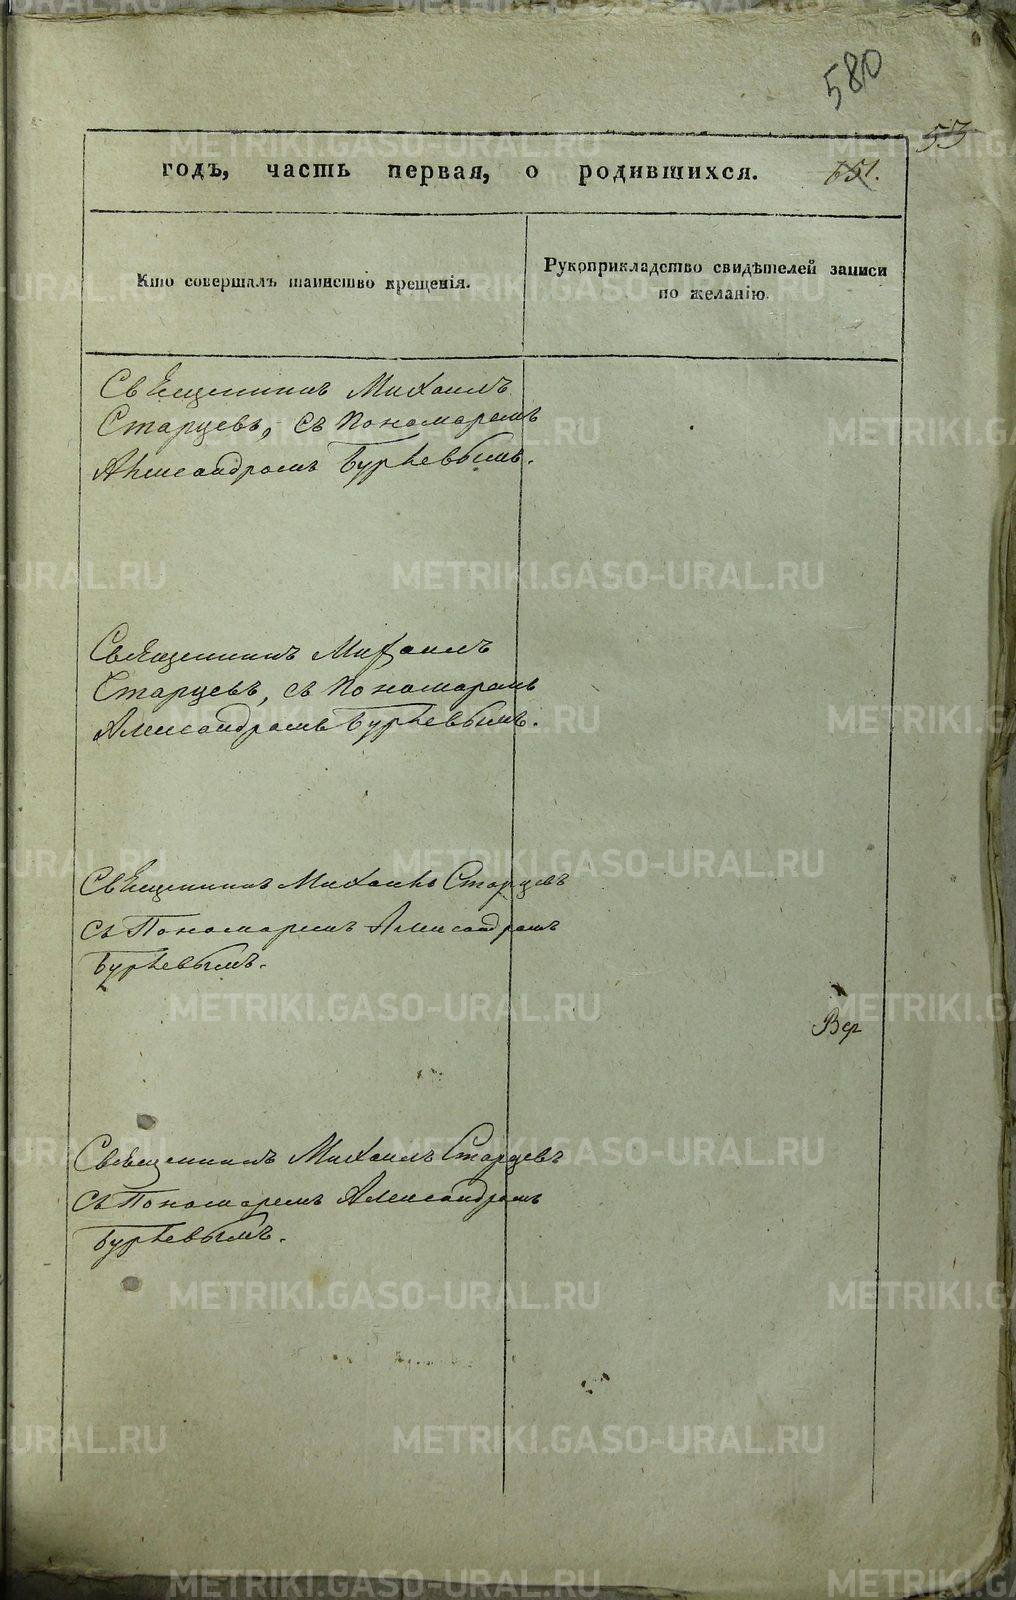 580
53
годъ, часть первая, о родившихся. 651.
Кто совершалъ таинство крещенія.
Рукоприкладство свидѣтелей записи
по желанію.
Священникъ Михаилъ
Старцевъ, съ Пономаремъ
Александромъ Бурѣевымъ.
Священникъ Михаилъ
Старцевъ, съ Пономаремъ
Александромъ Бурѣевымъ.
Священникъ Михаилъ Старцевъ
съ Пономаремъ Александромъ
Бурѣевымъ.
Вер
Священникъ Михаилъ Старцевъ
съ Пономаремъ Александромъ
Бурѣевымъ.
METRIKI.GASO-URAL.RU